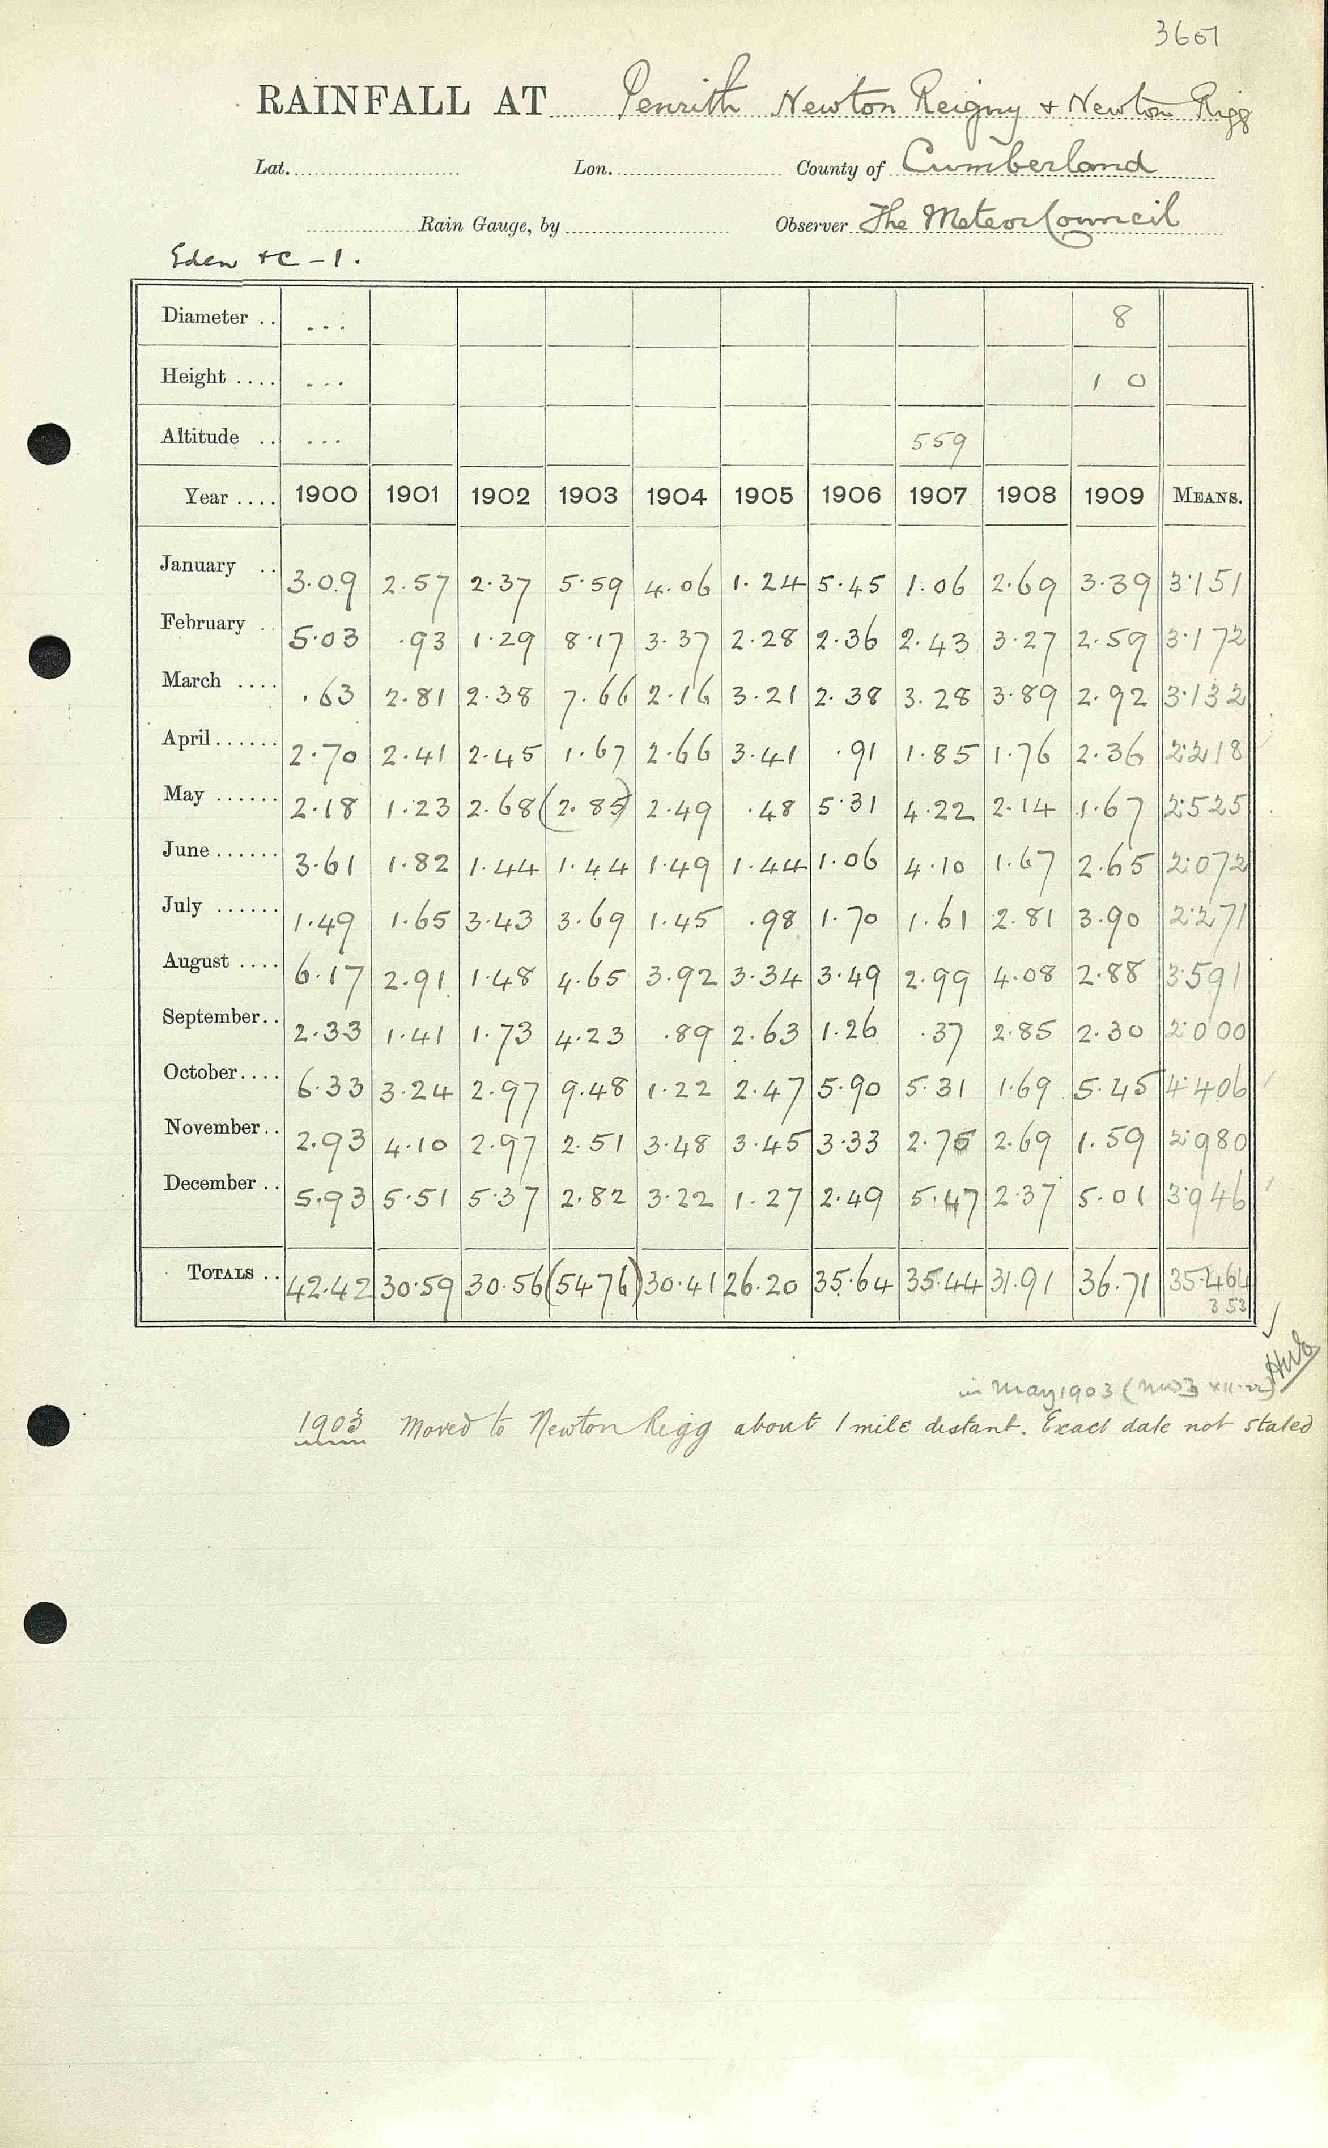 3601
RAINFALL AT Penrith Newton Reigny & Newton Rigg
Lat. Lon. County of Cumberland
Rain Gauge, by Observer The Meteor Council
Eden &c - 1.
Diameter .. ... 8
Height .... ... 1 0
Altitude .. ... 559
Year .... 1900 1901 1902 1903 1904 1905 1906 1907 1908 1909 MEANS.
January .. 3.09 2.57 2.37 5.59 4.06 1.24 5.45 1.06 2.69 3.39 3.151
February .. 5.03 .93 1.29 8.17 3.37 2.28 2.36 2.43 3.27 2.59 3.172
March .... .63 2.81 2.38 7.66 2.16 3.21 2.38 3.28 3.89 2.92 3.132
April ...... 2.70 2.41 2.45 1.67 2.66 3.41 .91 1.85 1.76 2.36 2.218
May ...... 2.18 1.23 2.68 (2.85) 2.49 .48 5.31 4.22 2.14 1.67 2.525
June ...... 3.61 1.82 1.44 1.44 1.49 1.44 1.06 4.10 1.67 2.65 2.072
July ...... 1.49 1.65 3.43 3.69 1.45 .98 1.70 1.61 2.81 3.90 2.271
August .... 6.17 2.91 1.48 4.65 3.92 3.34 3.49 2.99 4.08 2.88 3.591
September.. 2.33 1.41 1.73 4.23 .89 2.63 1.26 .37 2.85 2.30 2.000
October.... 6.33 3.24 2.97 9.48 1.22 2.47 5.90 5.31 1.69 5.45 4.406
November.. 2.93 4.10 2.97 2.51 3.48 3.45 3.33 2.75 2.69 1.59 2.980
December .. 5.93 5.51 5.37 2.82 3.22 1.27 2.49 5.47 2.37 5.01 3.946
TOTALS .. 42.42 30.59 30.56 (54.76) 30.41 26.20 35.64 35.44 31.91 36.71 35.464
353
in May 1903
1903 Moved to Newton Rigg about 1 mile distant. Exact date not stated